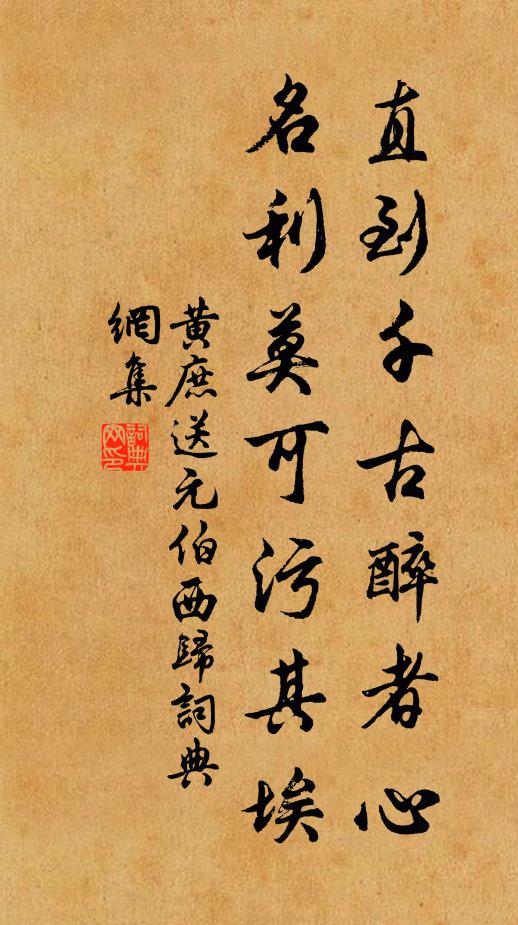 直到千古醉者心
名利莫可污其埃
黃庶送元伯西歸詞典
網集
詞典
网印